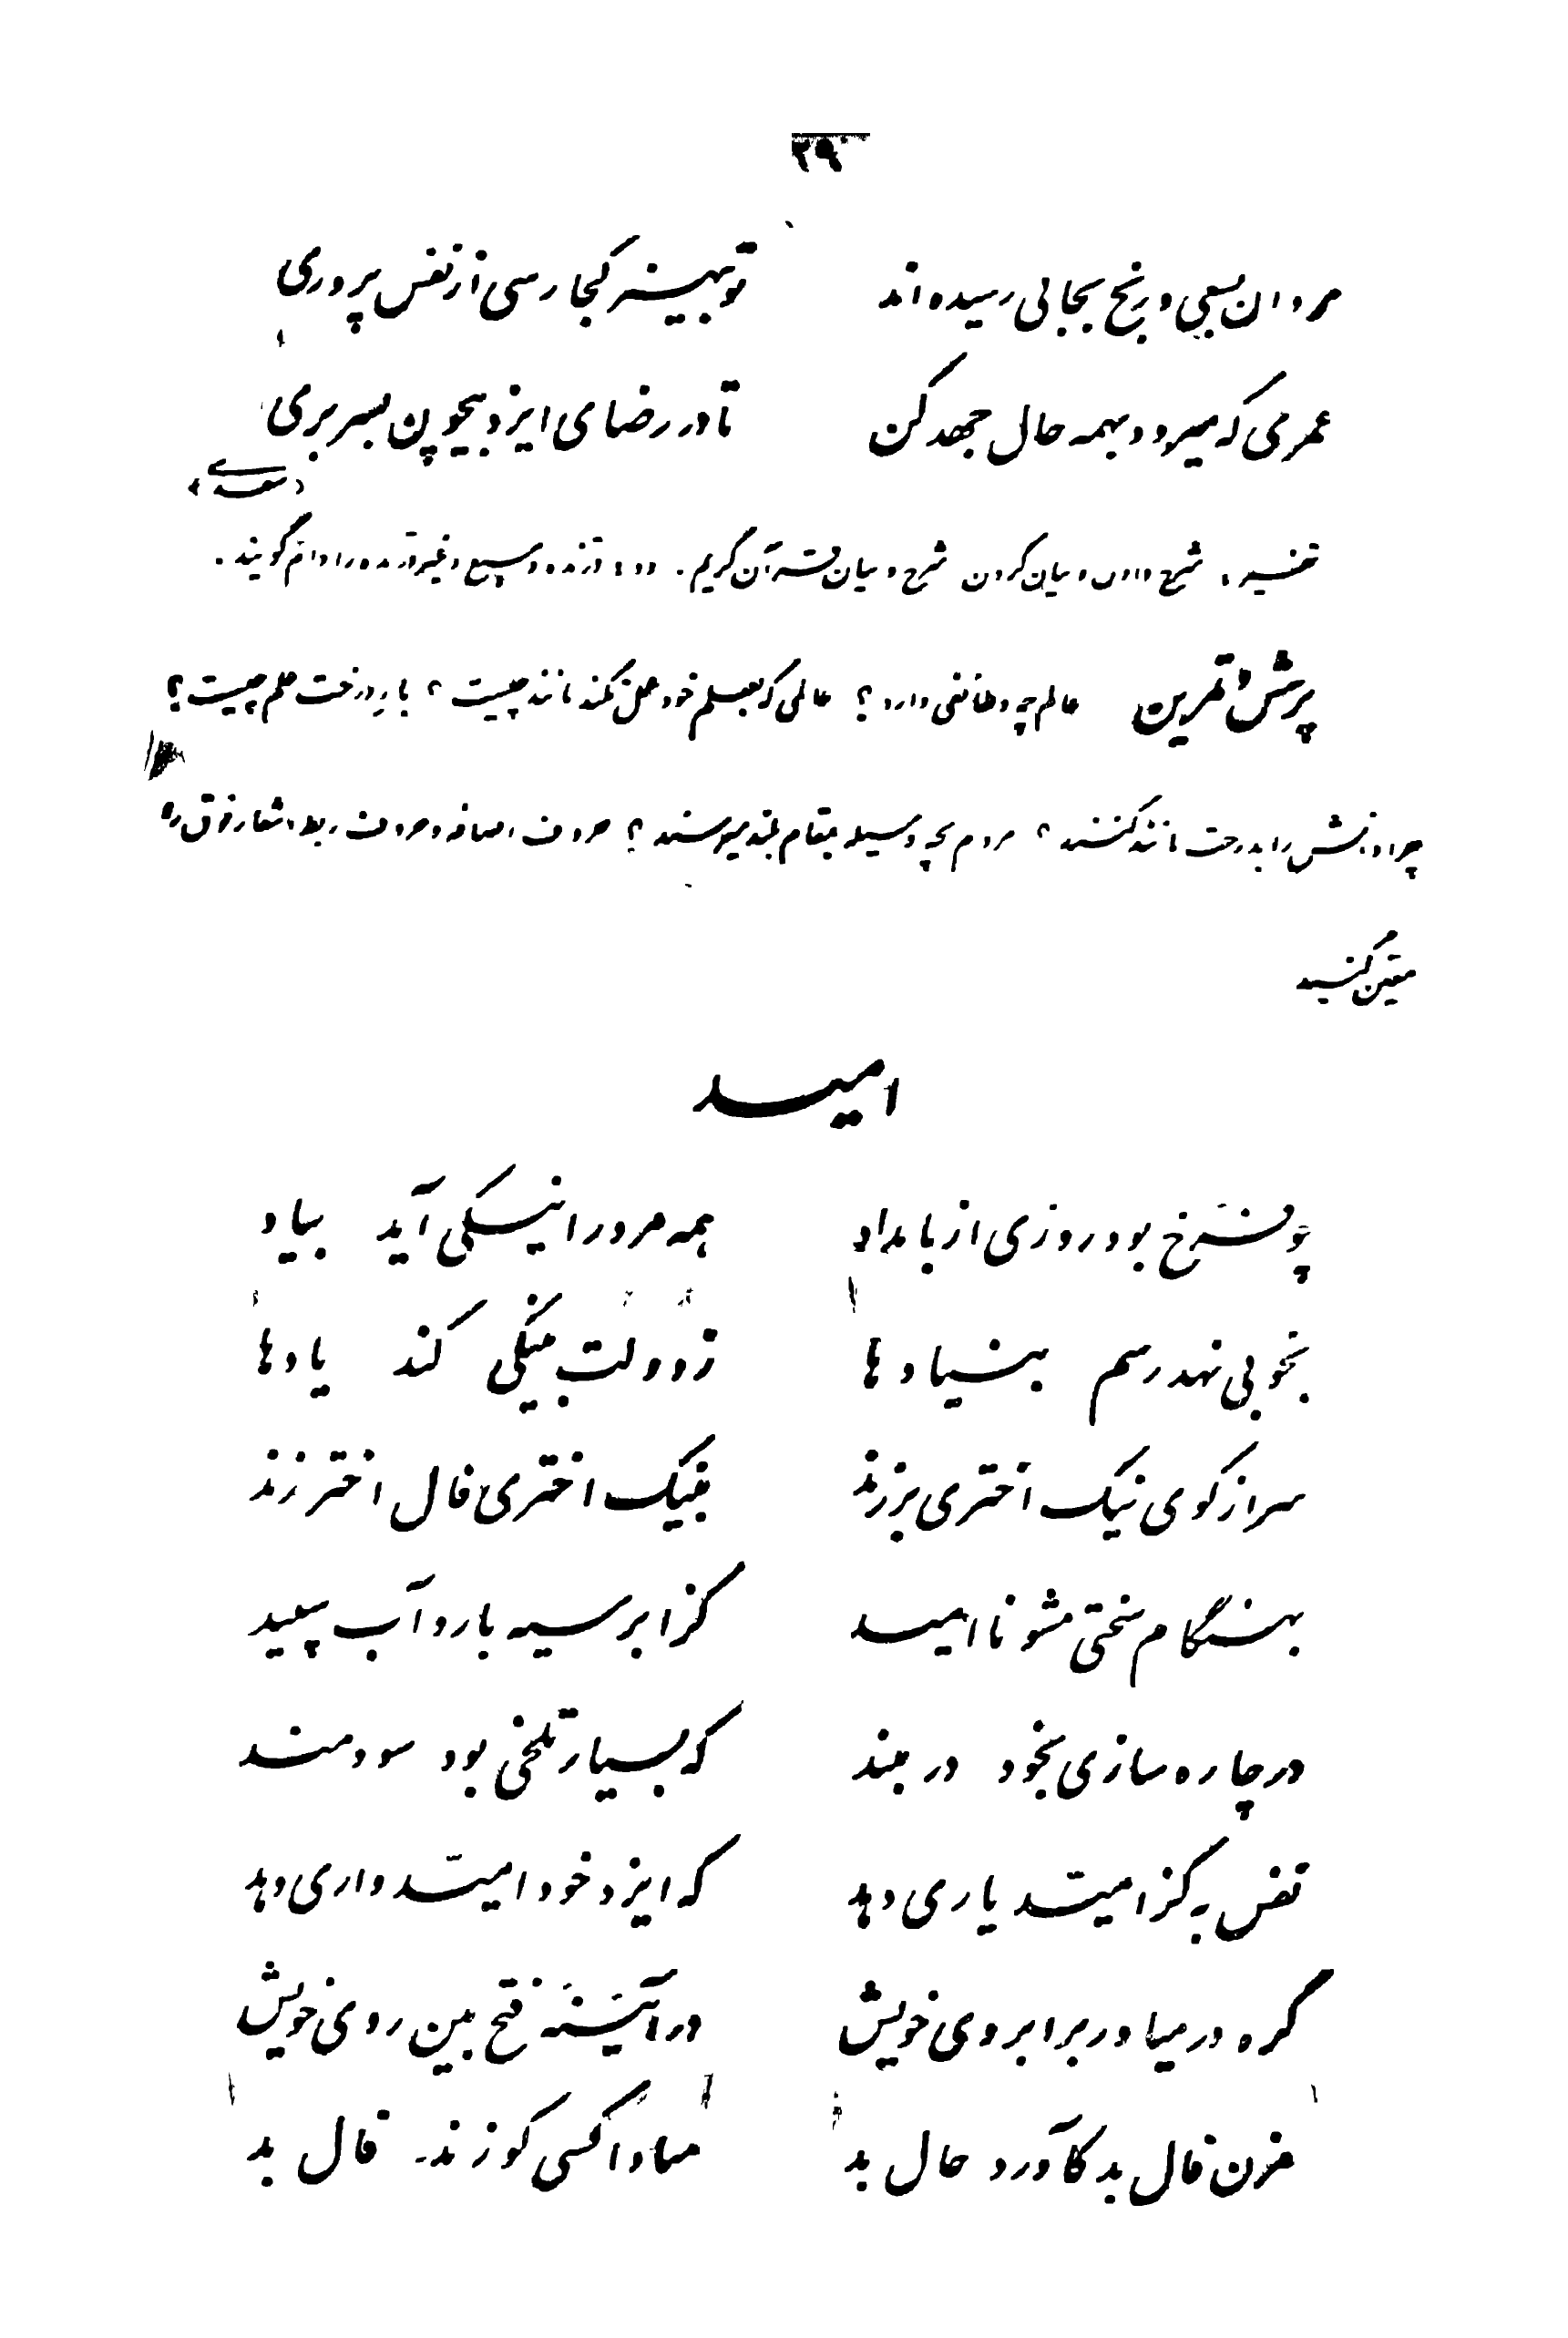 ۲۹
مردان بسعی و رنج بجائی رسیده‌اند تو بیهنر کجا رسی از نفس پروری
عمری که میرود بهمه حال جهد کن تا در رضای ایزد بیچون بسر بری
(سعدی)
تفسیر، شرح دادن و بیان کردن شرح و بیان قرآن کریم. دد، درنده و سبع و غیر درنده را دام گویند.
پرسش و تمرین عالم چه وظائفی دارد؟ عالمی که بعلم خود عمل نکند مانند چیست؟ بار درخت علم چیست؟
چرا دانش را بدرخت مانند کنند؟ مردم بچه وسیله بمقام بلند میرسند؟ حروف اضافه و حروف ربط اشعار فوق را
معین کنید
امید
چو فرّخ بود روزی از بامداد همه مرد را نیکی آید بیاد
بخوبی نهد رسم بنیادها ز دولت بنیکی کند یادها
سر از کوی نیک اختری برزند بنیک اختری فال اختر زند
بهنگام سختی مشو ناامید کز ابر سیه بارد آب سپید
در چاره سازی بخود در مبند که بسیار تلخی بود سودمند
نفس به کز امّید یاری دهد که ایزد خود امّیدواری دهد
گره در میاور بر ابروی خویش در آئینه فتح بین روی خویش
مزن فال بد کآورد حال بد مبادا کسی کو زند فال بد